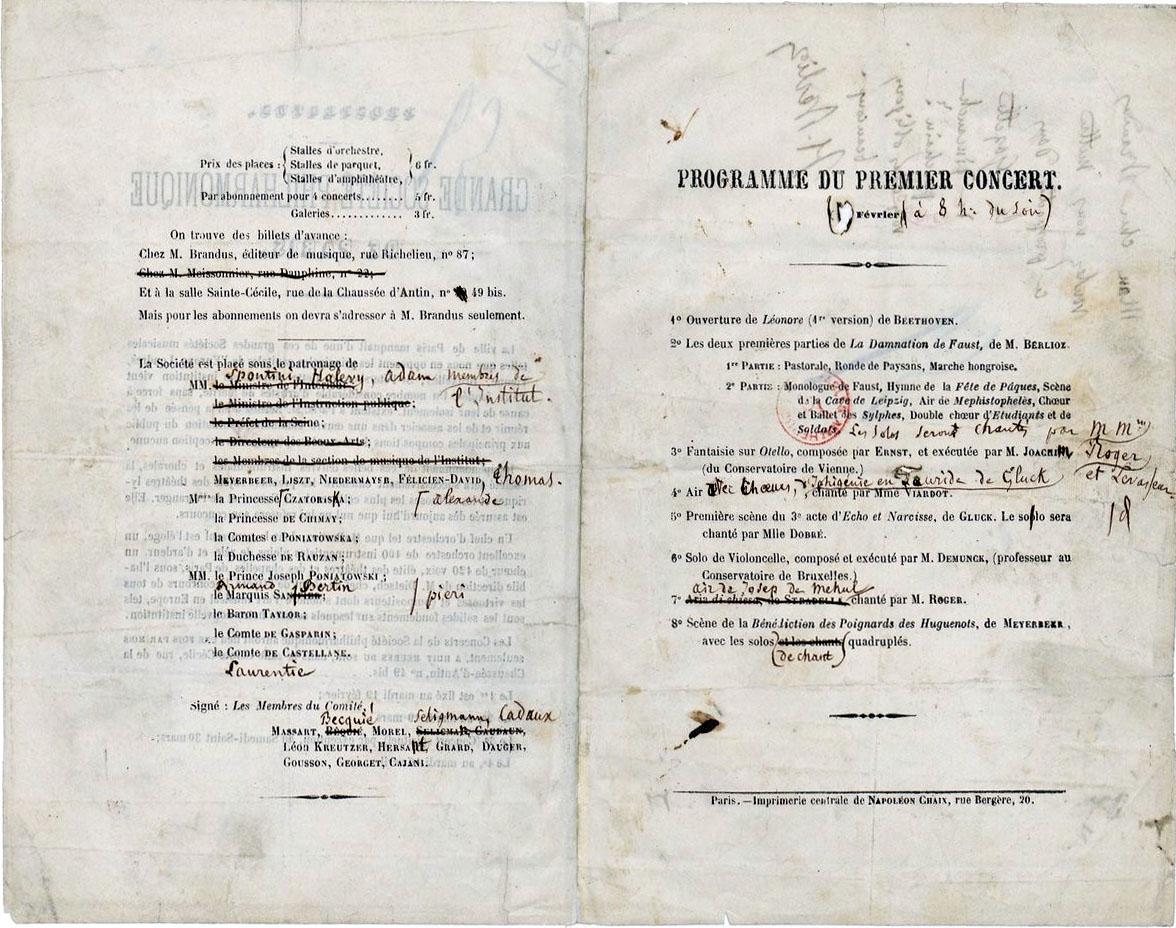 Prix des places :
Stalles d'orchestre,
Stalles de parquet,
Stalles d'amphithéâtre,
6 fr.
Par abonnement pour 4 concerts........ 5 fr.
Galeries............ 3 fr.
On trouve des billets d'avance :
Chez M. Brandus, éditeur de musique, rue Richelieu, nº 87;
Chez M. Meissonnier, rue Dauphine, nº 22;
Et à la salle Sainte-Cécile, rue de la Chaussée d'Antin, nº 49 bis.
Mais pour les abonnements on devra s'adresser à M. Brandus seulement.
La Société est placé sous le patronage de
Spontini, Halevy, adam membres de
MM. le Ministre de l'Intérieur;
l'Institut.
le Ministre de l'Instruction publique;
le Préfet de la Seine;
le Directeur des Beaux-Arts;
les Membres de la section de musique de l'Institut;
MEYERBEER, LISZT, NIEDERMAYER, FÉLICIEN-DAVID, Thomas.
la Princesse CZATORISKA; alexandre
la Princesse DE CHIMAY;
la Comtesse PONIATOWSKA;
la Duchesse DE RAUZAN;
MM. le Prince Joseph PONIATOWSKI;
Armand Bertin
le Marquis pieri
le Baron TAYLOR;
le Comte DE GASPARIN;
le Comte DE CASTELLANE.
Laurentie
Signé : Les Membres du Comité!
Becquié Seligmann, Cadaux
MASSART, BÉQUIÉ, MOREL, SELIGMAR, GAUDAUX,
LÉON KREUTZER, HERSANT, GRARD, DAUGER,
GOUSSON, GEORGET, CAJANI.
PROGRAMME DU PREMIER CONCERT.
Février à 8 h. du soir
1º Ouverture de Léonore (1re version) de BEETHOVEN.
2º Les deux premières parties de La Damnation de Faust, de M. BERLIOZ.
1re PARTIE : Pastorale, Ronde de Paysans, Marche hongroise.
2e PARTIE : Monologue de Faust, Hymne de la Fête de Pâques, Scène
de la Cave de Leipzig, Air de Mephistophelès, Chœur
et Ballet des Sylphes, Double chœur d'Etudiants et de
Soldats. Les Solos seront chantés par MM
3º Fantaisie sur Otello, composée par ERNST, et exécutée par M. JOACHIM Roger
(du Conservatoire de Vienne.) et Levasseur
avec Chœurs, d'Iphigénie en Tauride de Gluck
4º Air chanté par Mme VIARDOT.
5º Première scène du 3e acte d'Echo et Narcisse, de GLUCK. Le solo sera
chanté par Mlle DOBRÉ.
6º Solo de Violoncelle, composé et exécuté par M. DEMUNCK, (professeur au
Conservatoire de Bruxelles.)
air de Josep de Mehul
7º Aria di chiesa, de STRADELLA, chanté par M. ROGER.
8º Scène de la Bénédiction des Poignards des Huguenots, de MEYERBEER,
avec les solos et les chants quadruplés.
(de chant)
Paris.—Imprimerie centrale de NAPOLÉON CHAIX, rue Bergère, 20.